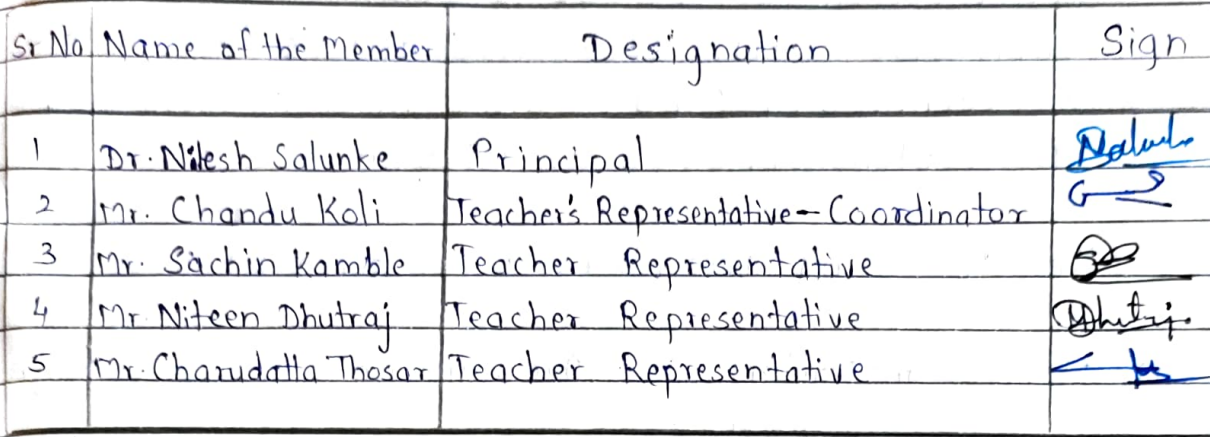 Sr No Name of the Member Designation Sign
1 Dr. Nilesh Salunke Principal
2 Mr. Chandu Koli Teacher's Representative - Coordinator
3 Mr. Sachin Kamble Teacher Representative
4 Mr Niteen Dhutraj Teacher Representative Dhutraj.
5 Mr. Charudatta Thosar Teacher Representative